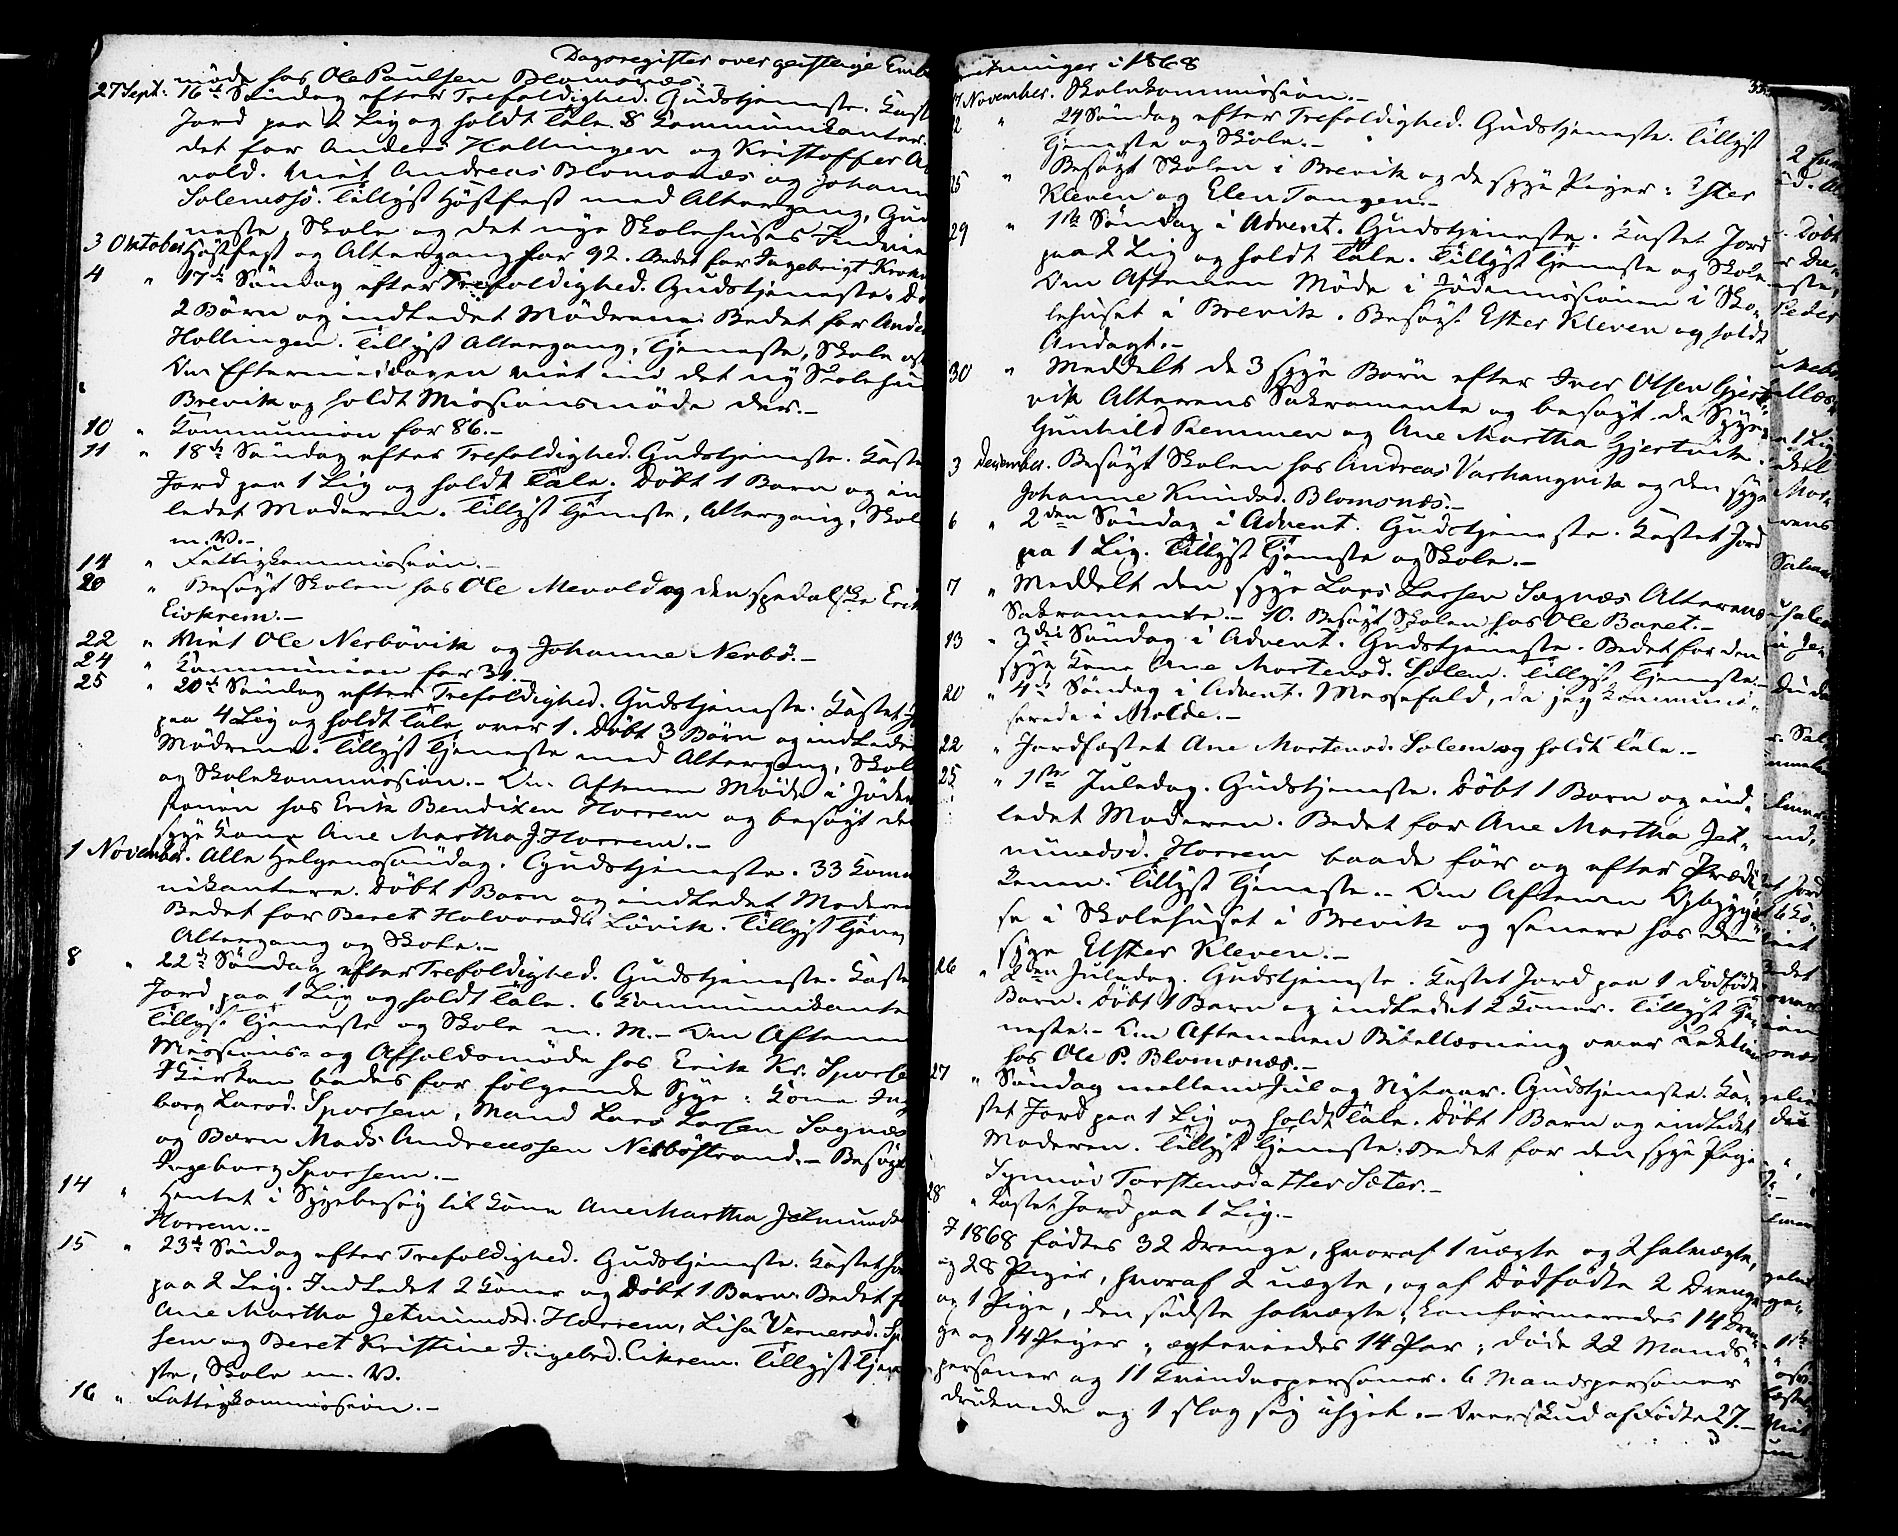 Dagsregister over geistlige Emb
møde hos Ole Paulsen Blomsnæs.-
27 Sept: 16de Søndag efter Trefoldighed. Gudstjeneste. Kast
Jord paa 2 Lig og holdt Tale. 8 Kommunikanter.
det for Anders Hollingen og Kristoffer A
vold. Viet Andreas Blomsnæs og Johann
Solemssø. Tillyst Høstfest med Altergang, Gud
neste, Skole og det nye Skolehuses Indvie
3 Oktober. Høstfest og Altergang for 92. Bedet for Ingebrigt Krohn
4 " 17de Søndag efter Trefoldighed. Gudstjeneste. Dø
2 Børn og indledet Mødrene. Bedet for Ander
Hollingen. Tillyst Altergang, Tjeneste, Skole osv
Om Eftermiddagen viet ind det ny Skolehus
Brevik og holdt Missionsmøde der.-
10 " Kommunion for 86.-
11 " 18de Søndag efter Trefoldighed. Gudstjeneste. Kaste
Jord paa 1 Lig og holdt Tale. Døbt 1 Barn og in
ledet Moderen. Tillyst Tjeneste, Altergang, Skol
m. V.-
14 " Fattigkommission.-
20 " Besøgt Skolen hos Ole Mevold og den spedalske Erik
Eiskrem.-
22 " Viet Ole Nerbøvik og Johanne Nerbø.-
24 " Kommunion for 31.-
25 " 20de Søndag efter Trefoldighed. Gudstjeneste. Kastet J
paa 4 Lig og holdt Tale over 1. Døbt 3 Børn og indledet
Mødrene. Tillyst Tjeneste med Altergang, Skole
og Skolekommission.- Om Aftenen Møde i Jødem
sionen hos Erik Bendixen Horrem og besøgt den
syge Kone Ane Martha J. Horrem.-
1 November. Alle Helgenssøndag. Gudstjeneste. 33 Kommu
nikantere. Døbt 1 Barn og indledet Moderen
Bedet for Beret Halvorsd. Løvik. Tillyst Tjene,
Altergang og Skole.-
8 " 22de Søndag efter Trefoldighed. Gudstjeneste. Kaste
Jord paa 1 Lig og holdt Tale. 6 Kommunikante
Tillyst Tjeneste og Skole m. M.- Om Aftenen
Missions- og Afholdsmøde hos Erik Kr. Sporse
I Kirken bedes for følgende Syge: Kone Ing
borg Larsd. Sporsem, Mand Lars Larsen Sognæs
og Barn Mads Andreassen Nerbøstrand.- Besøgt
Ingeborg Sporsem.-
14 " Hentet i Sygebesøg til Kone Ane Martha Jetmunds
Horrem.-
15 " 23de Søndag efter Trefoldighed. Gudstjeneste. Kastet Jor
paa 2 Lig. Indledet 2 Koner og Døbt 1 Barn. Bedet f
Ane Martha Jetmundsd. Horrem, Lisa Vernersd. Sp
sem og Beret Kristine Ingebrd. Eikrem. Tillyst Tjene
ste, Skole m. V.
16 " Fattigkommission.-
retninger i 1868
17 November. Skolekommission.-
22 " 24 Søndag efter Trefoldighed. Gudstjeneste. Tillyst
Tjeneste og Skole.-
25 " Besøgt Skolen i Brevik og de syge Piger: Ester
Kleven og Elen Tangen.-
29 " 1ste Søndag i Advent. Gudstjeneste. Kastet Jord
paa 2 Lig og holdt Tale. Tillyst Tjeneste og Skole
Om Aftenen Møde i Jødemissionen i Sko-
lehuset i Brevik. Besøgt Ester Kleven og holdt
Andagt.-
30 " Meddelt de 3 syge Børn efter Iver Olsen Gjert-
vik Alterens Sakramente og besøgt de Syge
Gunhild Remmen og Ane Martha Gjertvik.
3 December. Besøgt Skolen hos Andreas Varhaugvik og den syge
Johanne Knudsd. Blomsnæs.-
6 " 2den Søndag i Advent. Gudstjeneste. Kastet Jord
paa 1 Lig. Tillyst Tjeneste og Skole.-
7 " Meddelt den syge Lars Larsen Sognæs Alterens
Sakramente.- 10. Besøgt Skolen hos Ole Baret.-
13 " 3die Søndag i Advent. Gudstjeneste. Bedet for den
syge Kone Ane Mortensd. Solem. Tillyst Tjeneste.-
20 " 4de Søndag i Advent. Messefald, da jeg kommuni-
serede i Molde.-
22 " Jordfæstet Ane Mortensd. Solem og holdt Tale.-
25 " 1ste Juledag. Gudstjeneste. Døbt 1 Barn og ind-
ledet Moderen. Bedet for Ane Martha Jet-
mundsd. Horrem baade før og efter Prædi-
kenen. Tillyst Tjeneste.- Om Aftenen Opbyggel
se i Skolehuset i Brevik og senere hos den
syge Elster Kleven.-
26 " 2den Juledag. Gudstjeneste. Kastet Jord paa 1 dødfødt
Barn. Døbt 1 Barn og indledet 2 Koner. Tillyst Tje-
neste.- Om Aftenen Bibellæsning over Lektien
hos Ole P. Blomsnæs.-
27 " Søndag mellem Jul og Nytaar. Gudstjeneste. Ka-
stet Jord paa 1 Lig og holdt Tale. Døbt 1 Barn og indledet
Moderen. Tillyst Tjeneste. Bedet for den syge Pige
Synnøv Torstensdatter Sæter.-
28 " Kastet Jord paa 1 Lig.-
I 1868 fødtes 32 Drenge, hvoraf 1 uægte og 2 halvægte,
og 28 Piger, hvoraf 2 uægte, og af Dødfødte 2 Drenge
og 1 Pige, den sidste halvægte; konfirmeredes 14 Dren-
ge og 14 Piger; ægteviedes 14 Par; døde 22 Mands-
personer og 11 Kvindespersoner. 6 Mandspersoner
druknede og 1 slog sig ihjel.- Overskud af Fødte 27.-